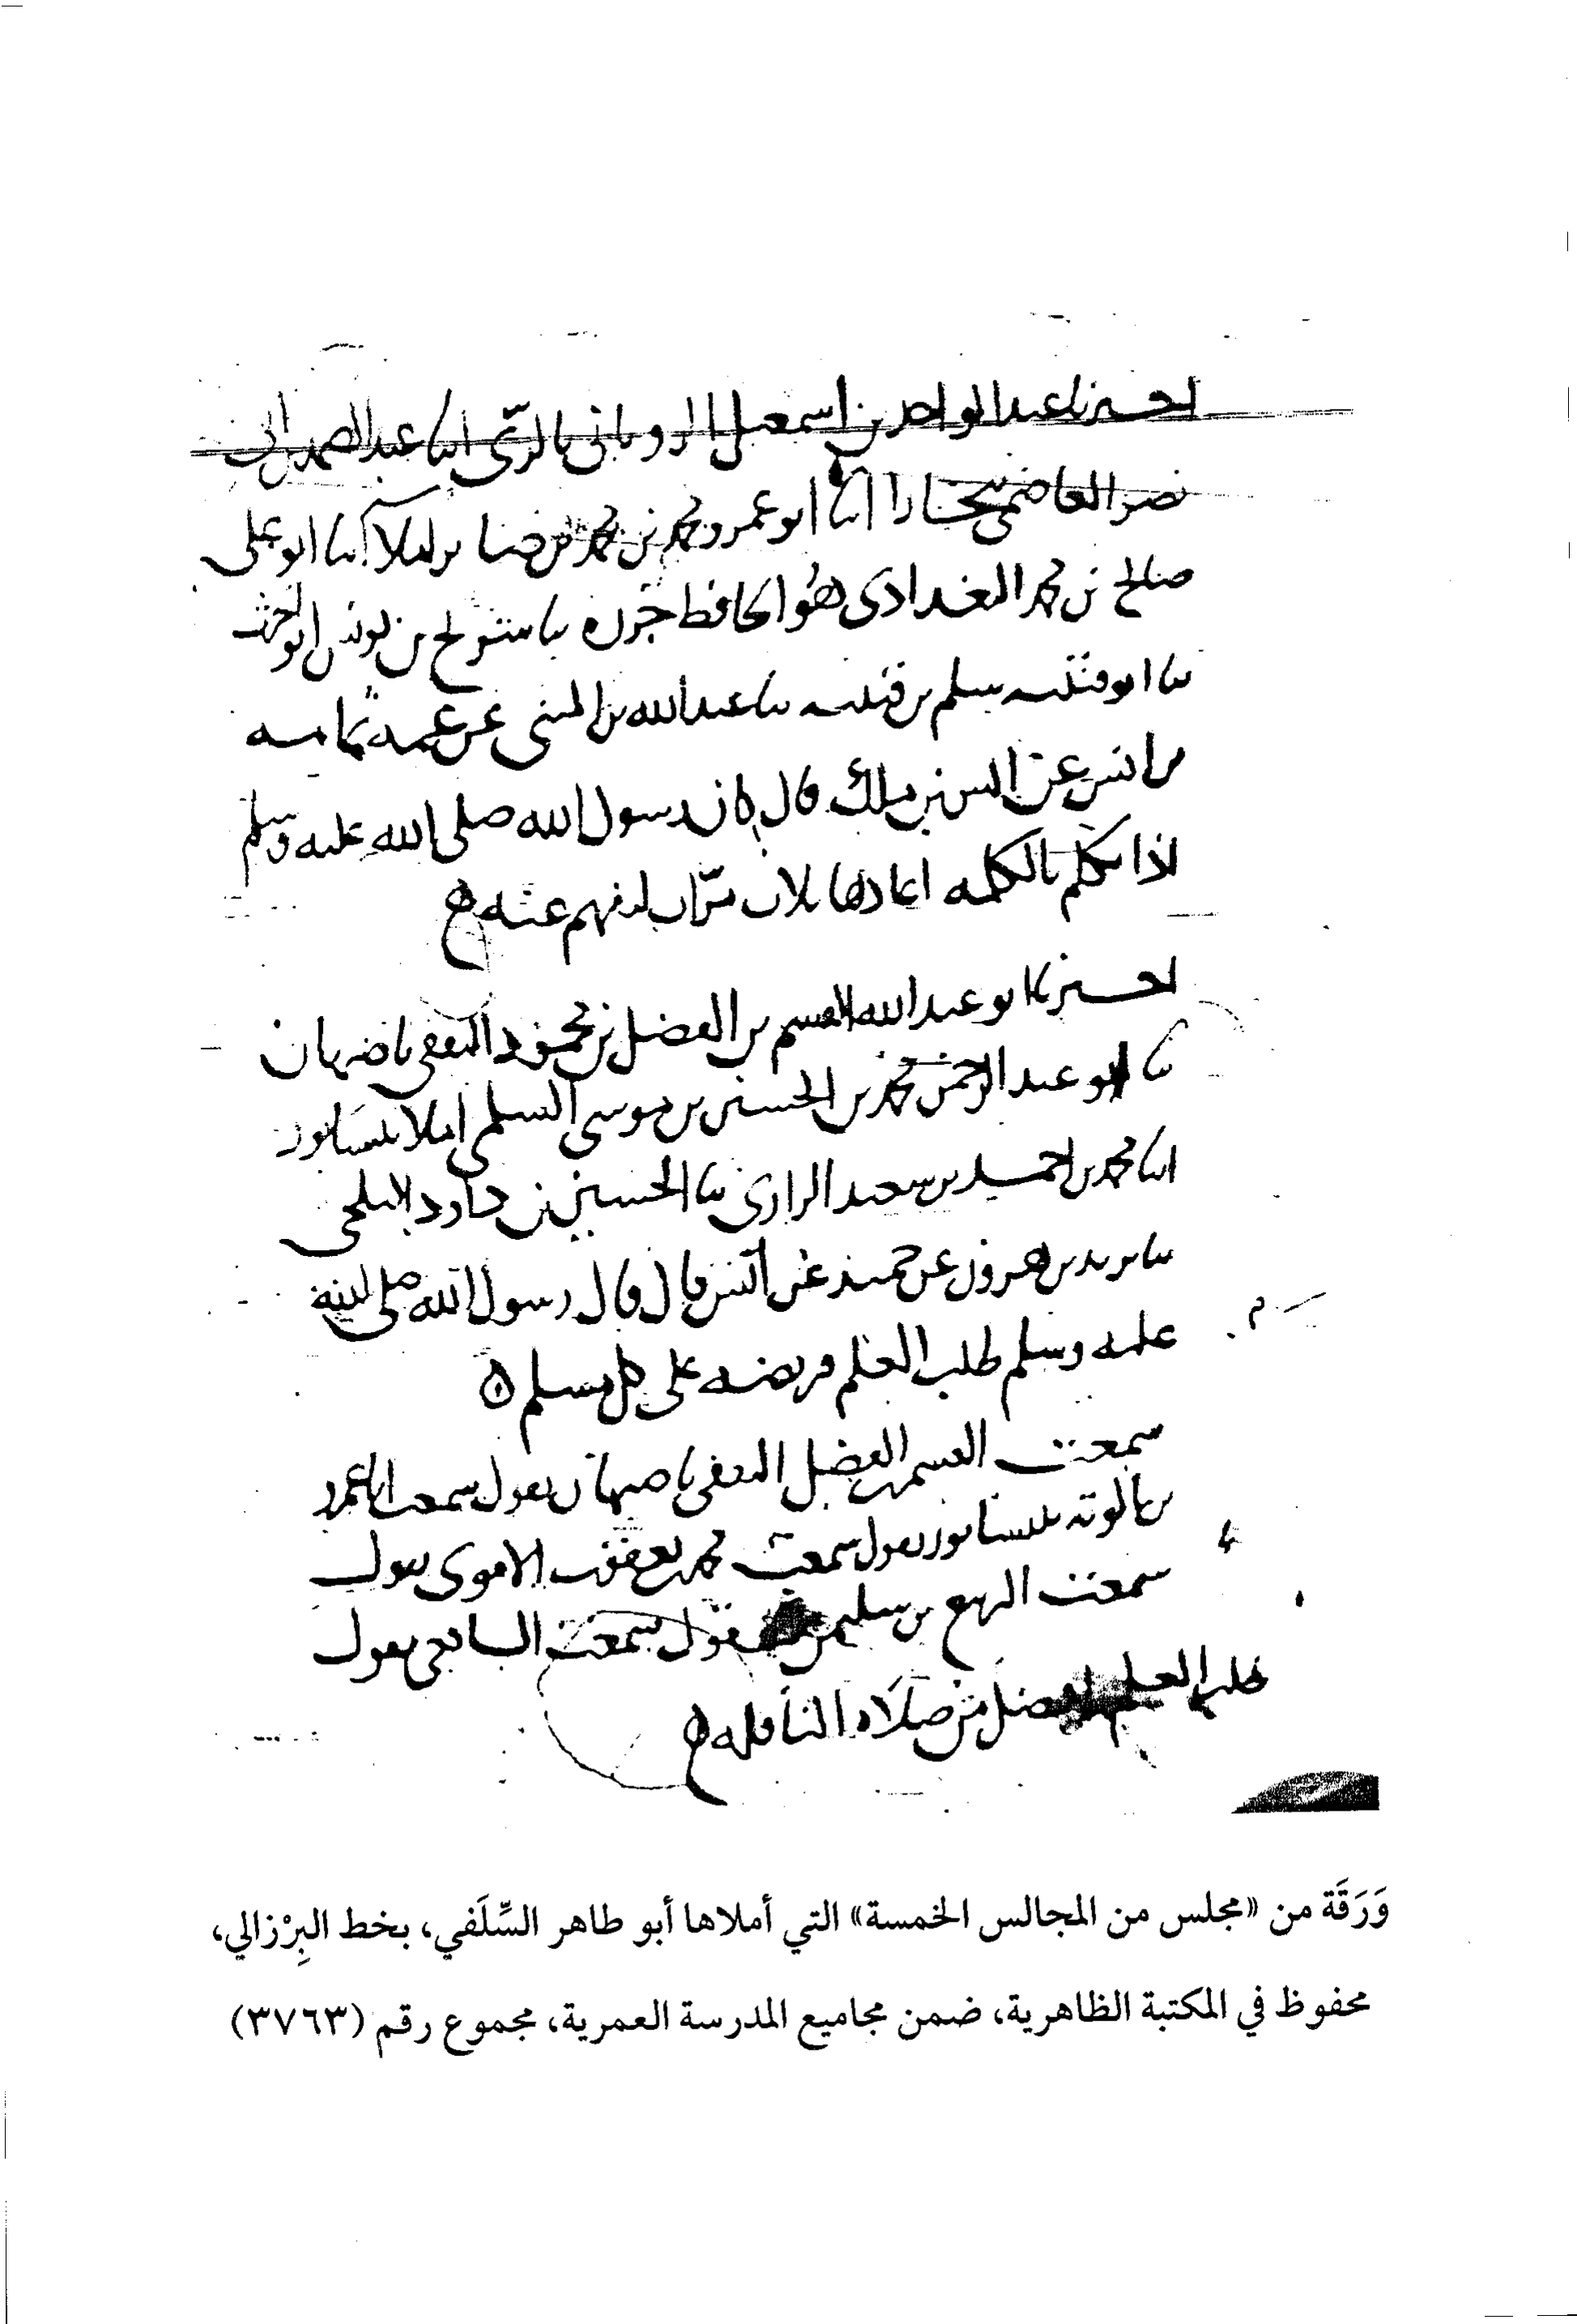 اخبرنا عبد الواحد بن اسمعيل الروياني بالري انبا عبد الصمد بن ابي
نصر العاصمي ببخارا انبا ابو عمرو محمد بن محمد بن صابر املا انبا ابو علي
صالح بن محمد البغدادي هو الحافظ جزره ثنا سريج بن يونس ابو الحرث
ثنا ابو قتيبه سلم بن قتيبه ثنا عبد الله بن المثنى عن عمه ثمامه
بن انس عن انس بن ملك قال كان رسول الله صلى الله عليه وسلم
اذا تكلم بالكلمه اعادها ثلاث مرات لتفهم عنه
اخبرنا ابو عبد الله القسم بن الفضل بن محمود الثقفي باصبهان
ثنا ابو عبد الرحمن محمد بن الحسين بن موسى السلمي املا بنيسابور
انبا محمد بن احمد بن سعيد الرازي ثنا الحسين بن داود البلخي
ثنا يزيد بن هرون عن حميد عن انس قال قال رسول الله صلى الله
عليه وسلم طلب العلم فريضه على كل مسلم
سمعت القسم بن الفضل الثقفي باصبهان يقول سمعت ابا عمرو
بن بالويه بنيسابور يقول سمعت محمد بن يعقوب الاموي يقول
سمعت الربيع بن سليمن يقول سمعت الشافعي يقول
طلب العلم افضل من صلاه النافله
وَرَقَة من «مجلس من المجالس الخمسة» التي أملاها أبو طاهر السِّلَفي، بخط البِرْزالي،
محفوظ في المكتبة الظاهرية، ضمن مجاميع المدرسة العمرية، مجموع رقم (٣٧٦٣)